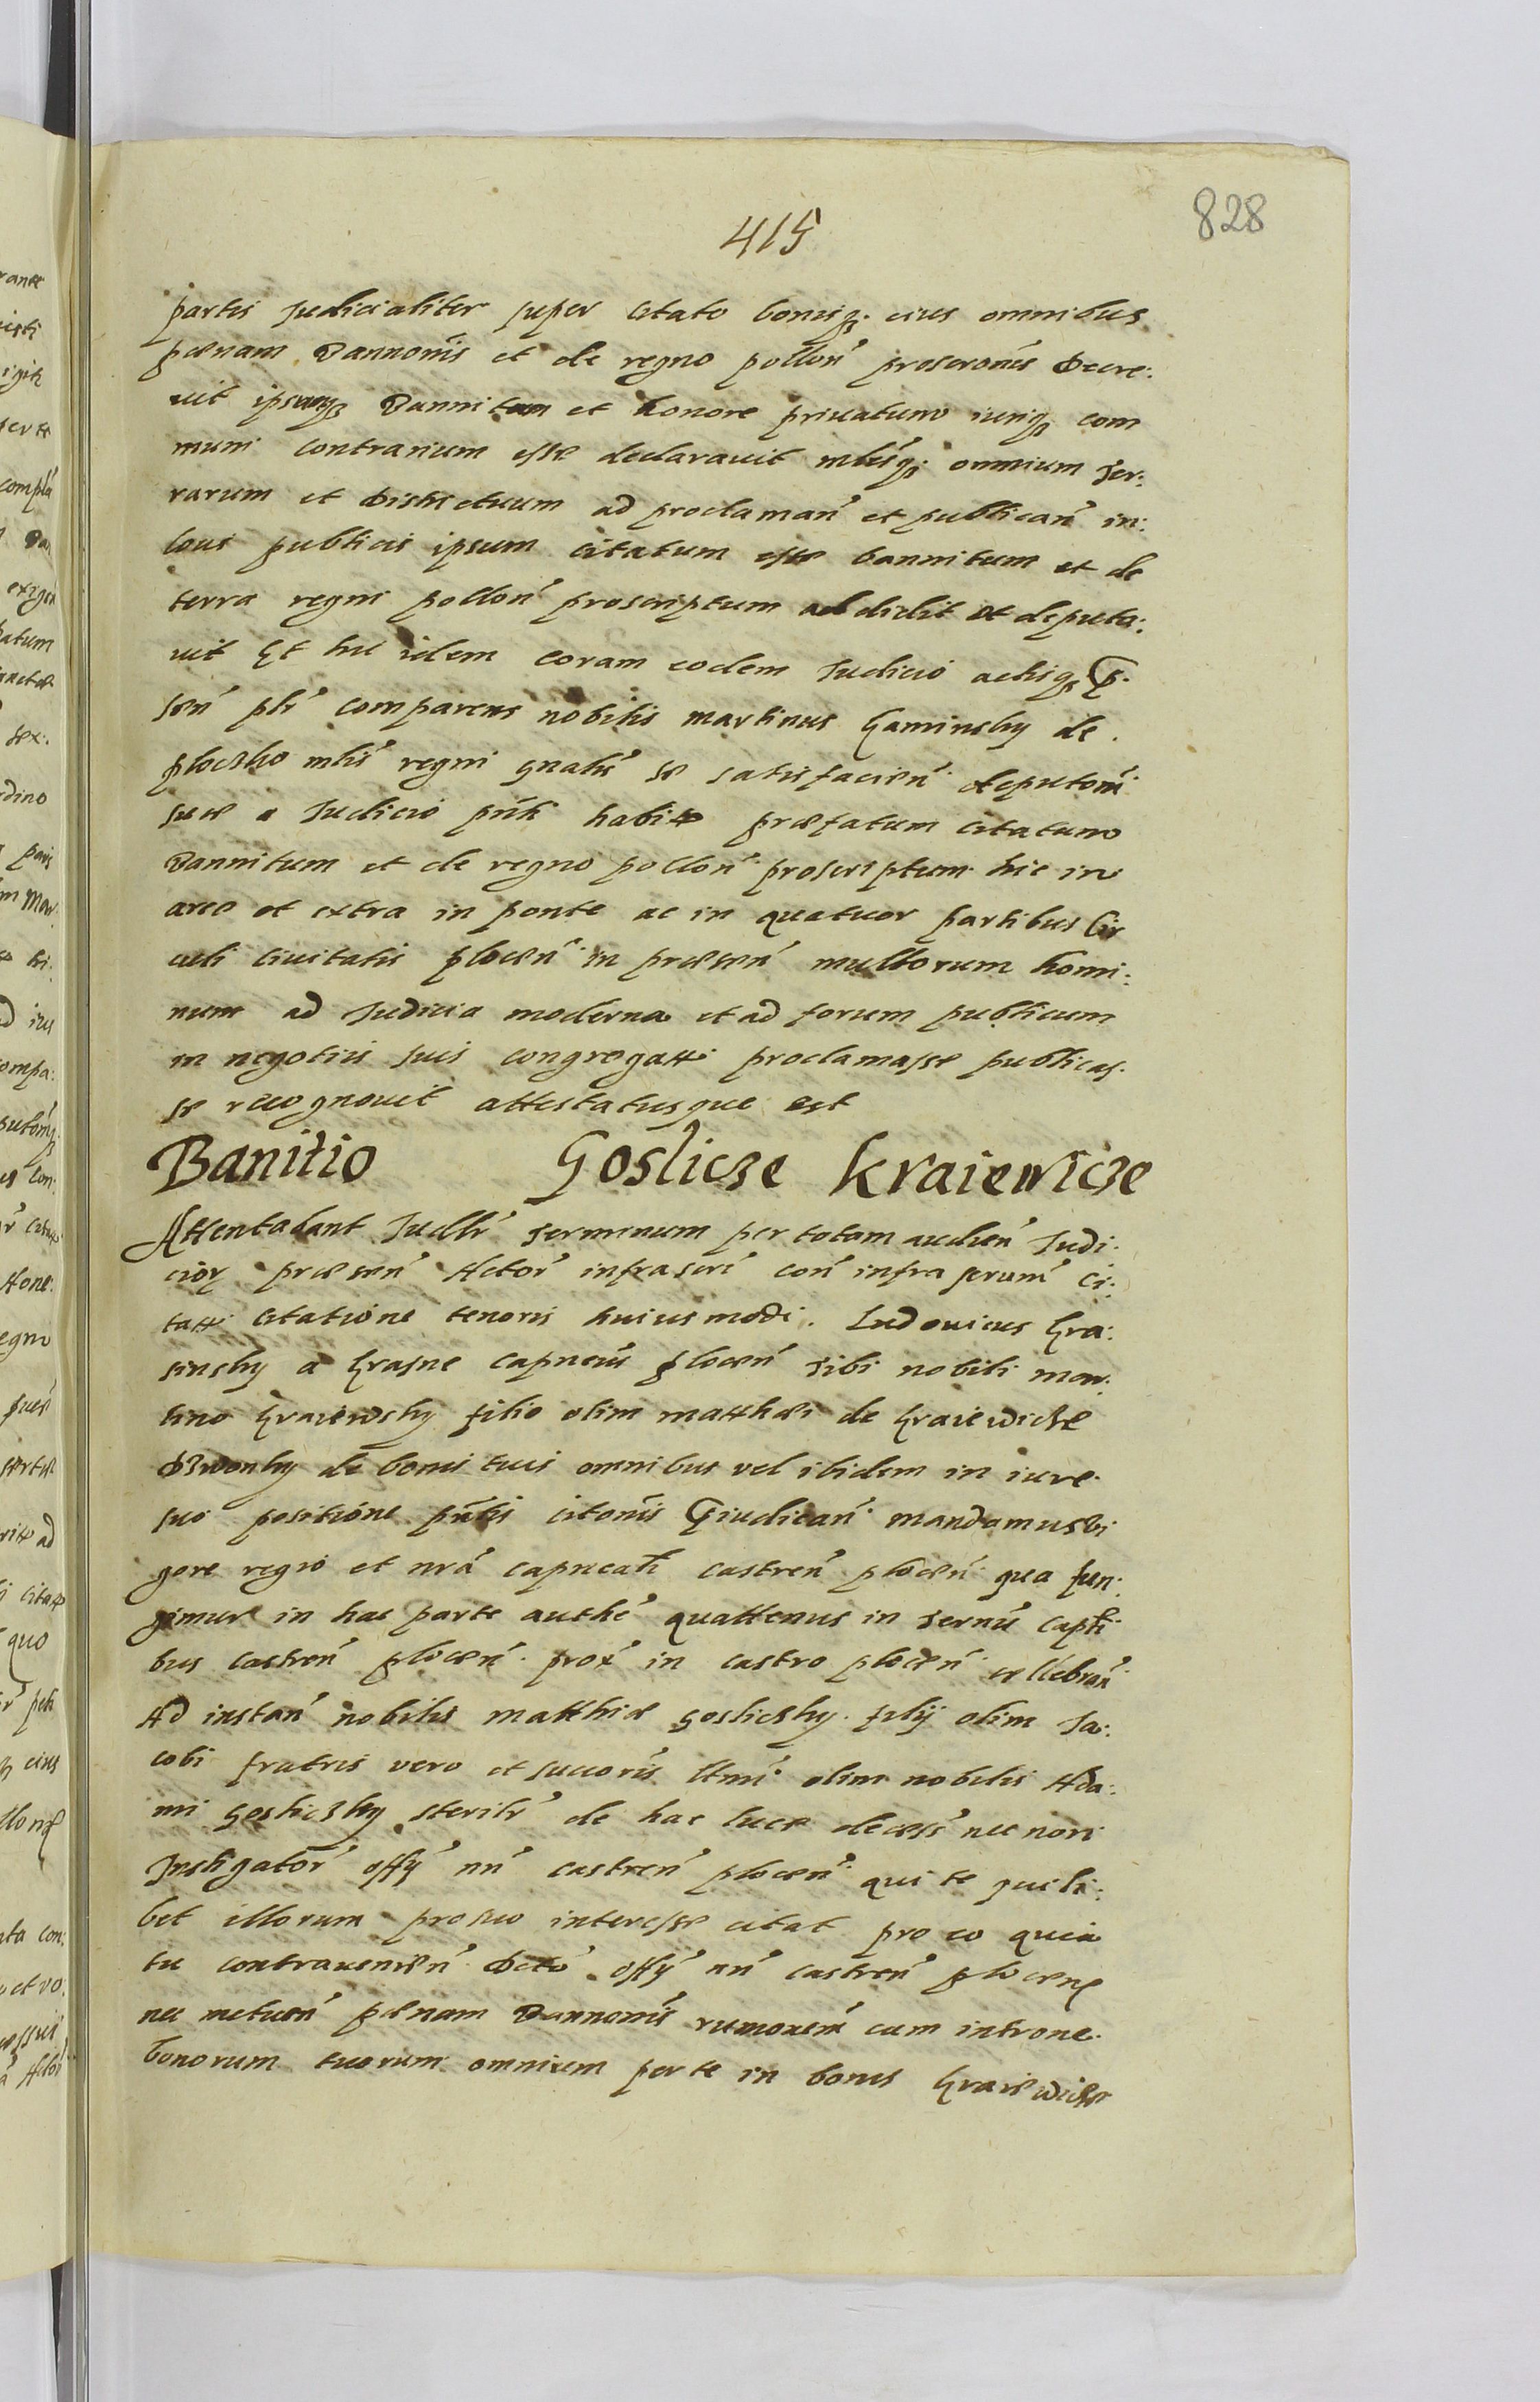 415
828
partis Judicialiter super Citato bonisq; eius omnibus
pœnam Bannonis et de regno pollon proscronis Decre:
uit ipsumq; Bannitum et honore priuatum iuriq; com
muni contrarium esse declarauit mlisq; omnium Ter:
rarum et Districtuum ad proclaman et publican in:
locis publicis ipsum citatum esse bannitum et de
terra regni pollon proscriptum addidit et deputa:
uit Et hic idem coram eodem Judicio actisq; p:
sen plr comparens nobilis martinus Kaminsky de
ploczko mlis regni gnalis se satisfacien deputoni
suæ a Judicio pnti habitæ præfatum citatum
Bannitum et de regno pollon proscriptum hic in
arce et extra in ponte ac in quatuor partibus Cir
culi Ciuitatis plocen in præsen multorum homi:
num ad Judicia moderna et ad forum publicum
in negotiis suis congregatti proclamasse publicas
se recognouit attestatusque est
Banitio Goslicze Kraiewicze
Attentabant Judlr Terminum per totam audien Judi:
cior præsen Actor infrascri con infra scrum Ci:
tatti citatione tenoris huiusmodi. Ludouicus Kra:
sinsky a Krasne capneus plocen Tibi nobili mar:
tino Kraiewsky filio olim matthæi de Kraiewicze
Dzwonky de bonis tuis omnibus vel ibidem in iure
suo positione pntis citonis præiudican mandamus vi
gore regio et nra capneali castren plocen qua fun:
gimur in hac parte authe quattenus in Ternis capti
bus castren plocen prox in castro plocen cællebran
Ad instan nobilis matthiæ gosliczky filij olim Ja:
cobi fratris vero et succoris ltmi olim nobilis Ada:
mi gosliczky sterilr de hac luce decess nec non
Instigator offy nri castren plocen qui te quili:
bet illorum pro suo interesse citat pro eo quia
tu contrauenien Decto offy nri castren plocen
nec metuen pœnam Bannonis rumonem cum introne
bonorum tuorum omnium per te in bonis Kraiewicze